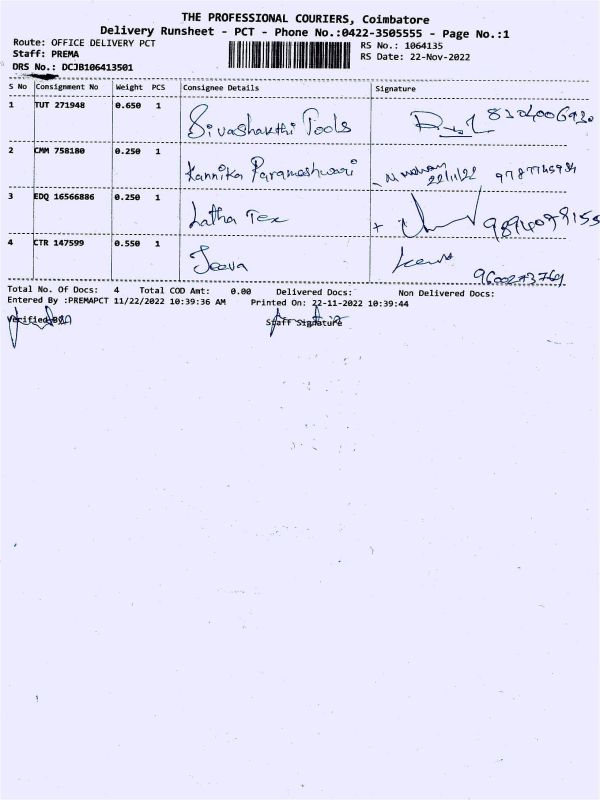 THE PROFESSIONAL COURIERS, Coimbatore
Delivery Runsheet - PCT - Phone No.:0422-3505555 - Page No.:1
Route: OFFICE DELIVERY PCT
Staff: PREMA
DRS No.: DCJB106413501
RS No.: 1064135
RS Date: 22-Nov-2022
S No Consignment No Weight PCS Consignee Details Signature
1 TUT 271948 0.650 1 Sivashakthi Tools
2 CMM 758180 0.250 1 Kannika Parameshwari 22/11/22
3 EDQ 16566886 0.250 1 Latha Tex
4 CTR 147599 0.550 1 Jeeva
Total No. Of Docs: 4 Total COD Amt: 0.00 Delivered Docs: Non Delivered Docs:
Entered By :PREMAPCT 11/22/2022 10:39:36 AM Printed On: 22-11-2022 10:39:44
Verified By
Staff Signature